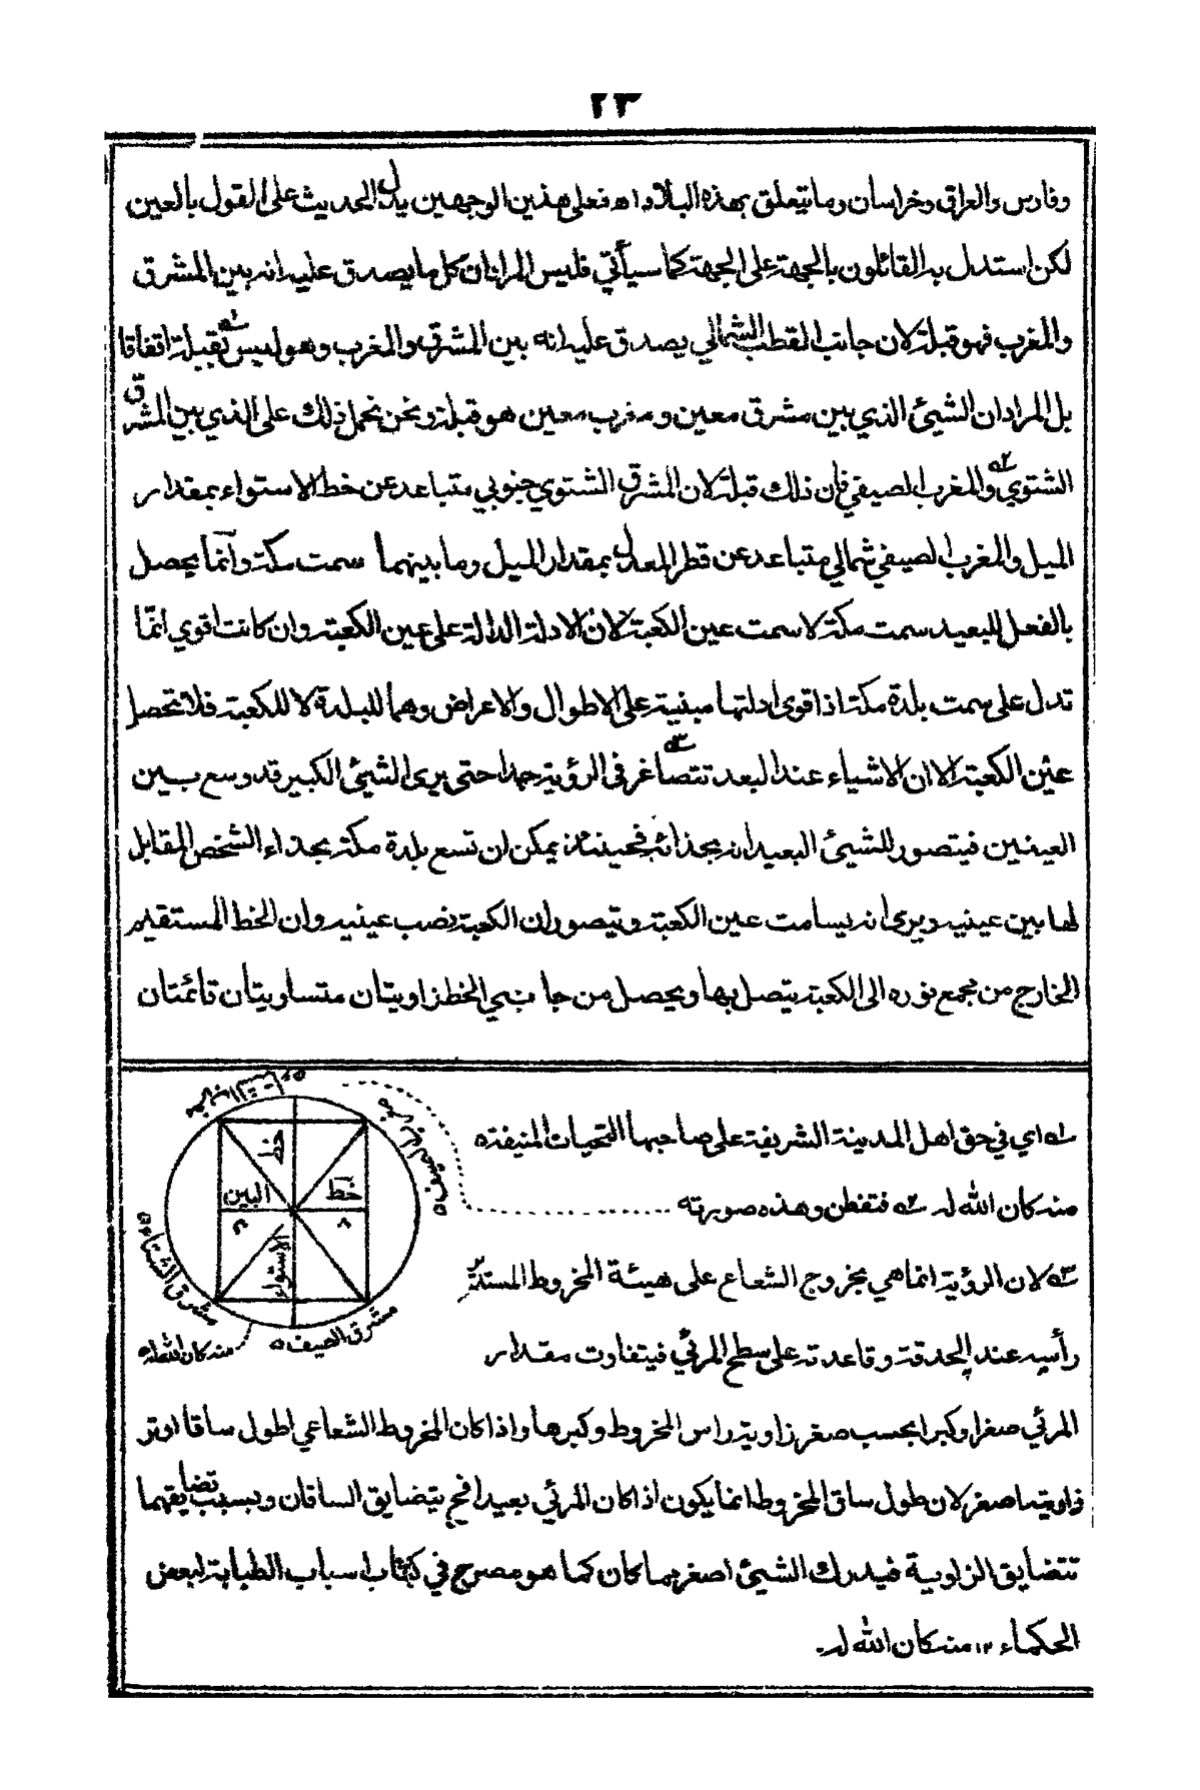 ٢٣
وفارس والعراق وخراسان وما يتعلق بهذه البلاد اه فعلى هذين الوجهين يدل الحديث على القول بالعين
لكن استدل به القائلون بالجهة على الجهة كما سيأتي فليس المراد ان كل ما يصدق عليه انه بين المشرق
والمغرب فهو قبلة لان جانب القطب الشمالي يصدق عليه انه بين المشرق والمغرب وهو ليس بقبلة له اتفاقا
بل المراد ان الشيئ الذي بين مشرق معين ومغرب معين هو قبلة ونحن نحمل ذلك على الذي بين المشرق
الشتوي والمغرب الصيفي فإن ذلك قبلة لان المشرق الشتوي جنوبي متباعد عن خط الاستواء بمقدار
الميل والمغرب الصيفي شمالي متباعد عن قطر المعدل بمقدار الميل وما بينهما سمت مكة وانما يحصل
بالفعل للبعيد سمت مكة لا سمت عين الكعبة لان الادلة الدالة على عين الكعبة وان كانت اقوي انما
تدل على سمت بلدة مكة اذ اقوى ادلتها مبنية على الاطوال والاعراض وهما للبلدة لا للكعبة فلا تحصل
عين الكعبة الا ان الاشياء عند البعد تتصاغر في الرؤية جدا حتى يرى الشيئ الكبير قد وسع بين
العينين فيتصور للشيئ البعيد انه بحذائه فحينئذ يمكن ان تسع بلدة مكة بحذاء الشخص المقابل
لها بين عينيه ويرى انه يسامت عين الكعبة ويتصور ان الكعبة نصب عينيه وان الخط المستقيم
الخارج من مجمع نوره الى الكعبة يتصل بها ويحصل من جانبي الخط زاويتان متساويتان قائمتان
له اي في حق اهل المدينة الشريفة على صاحبها التحيات المنيفة
منه كان الله له فتفطن وهذه صورته
لان الرؤية انما هي بخروج الشعاع على هيئة المخروط المستدير
رأسه عند الحدقة وقاعدته على سطح المرئي فيتفاوت مقدار
المرئي صغرا وكبرا بحسب صغر زاوية راس المخروط وكبرها واذا كان المخروط الشعاعي اطول ساقا اوتر
زاوية اصغر لان طول ساق المخروط انما يكون اذا كان المرئي بعيدا فح يتضايق الساقان وبسبب تضايقهما
تتضايق الزاوية فيدرك الشيئ اصغر مما كان كما هو مصرح في كتاب اسباب الطبابة لبعض
الحكماء ١٢ منه كان الله له
خط
خط
البين
الاستواء
مشرق الشتاء
مشرق الصيف
منه كان الله له